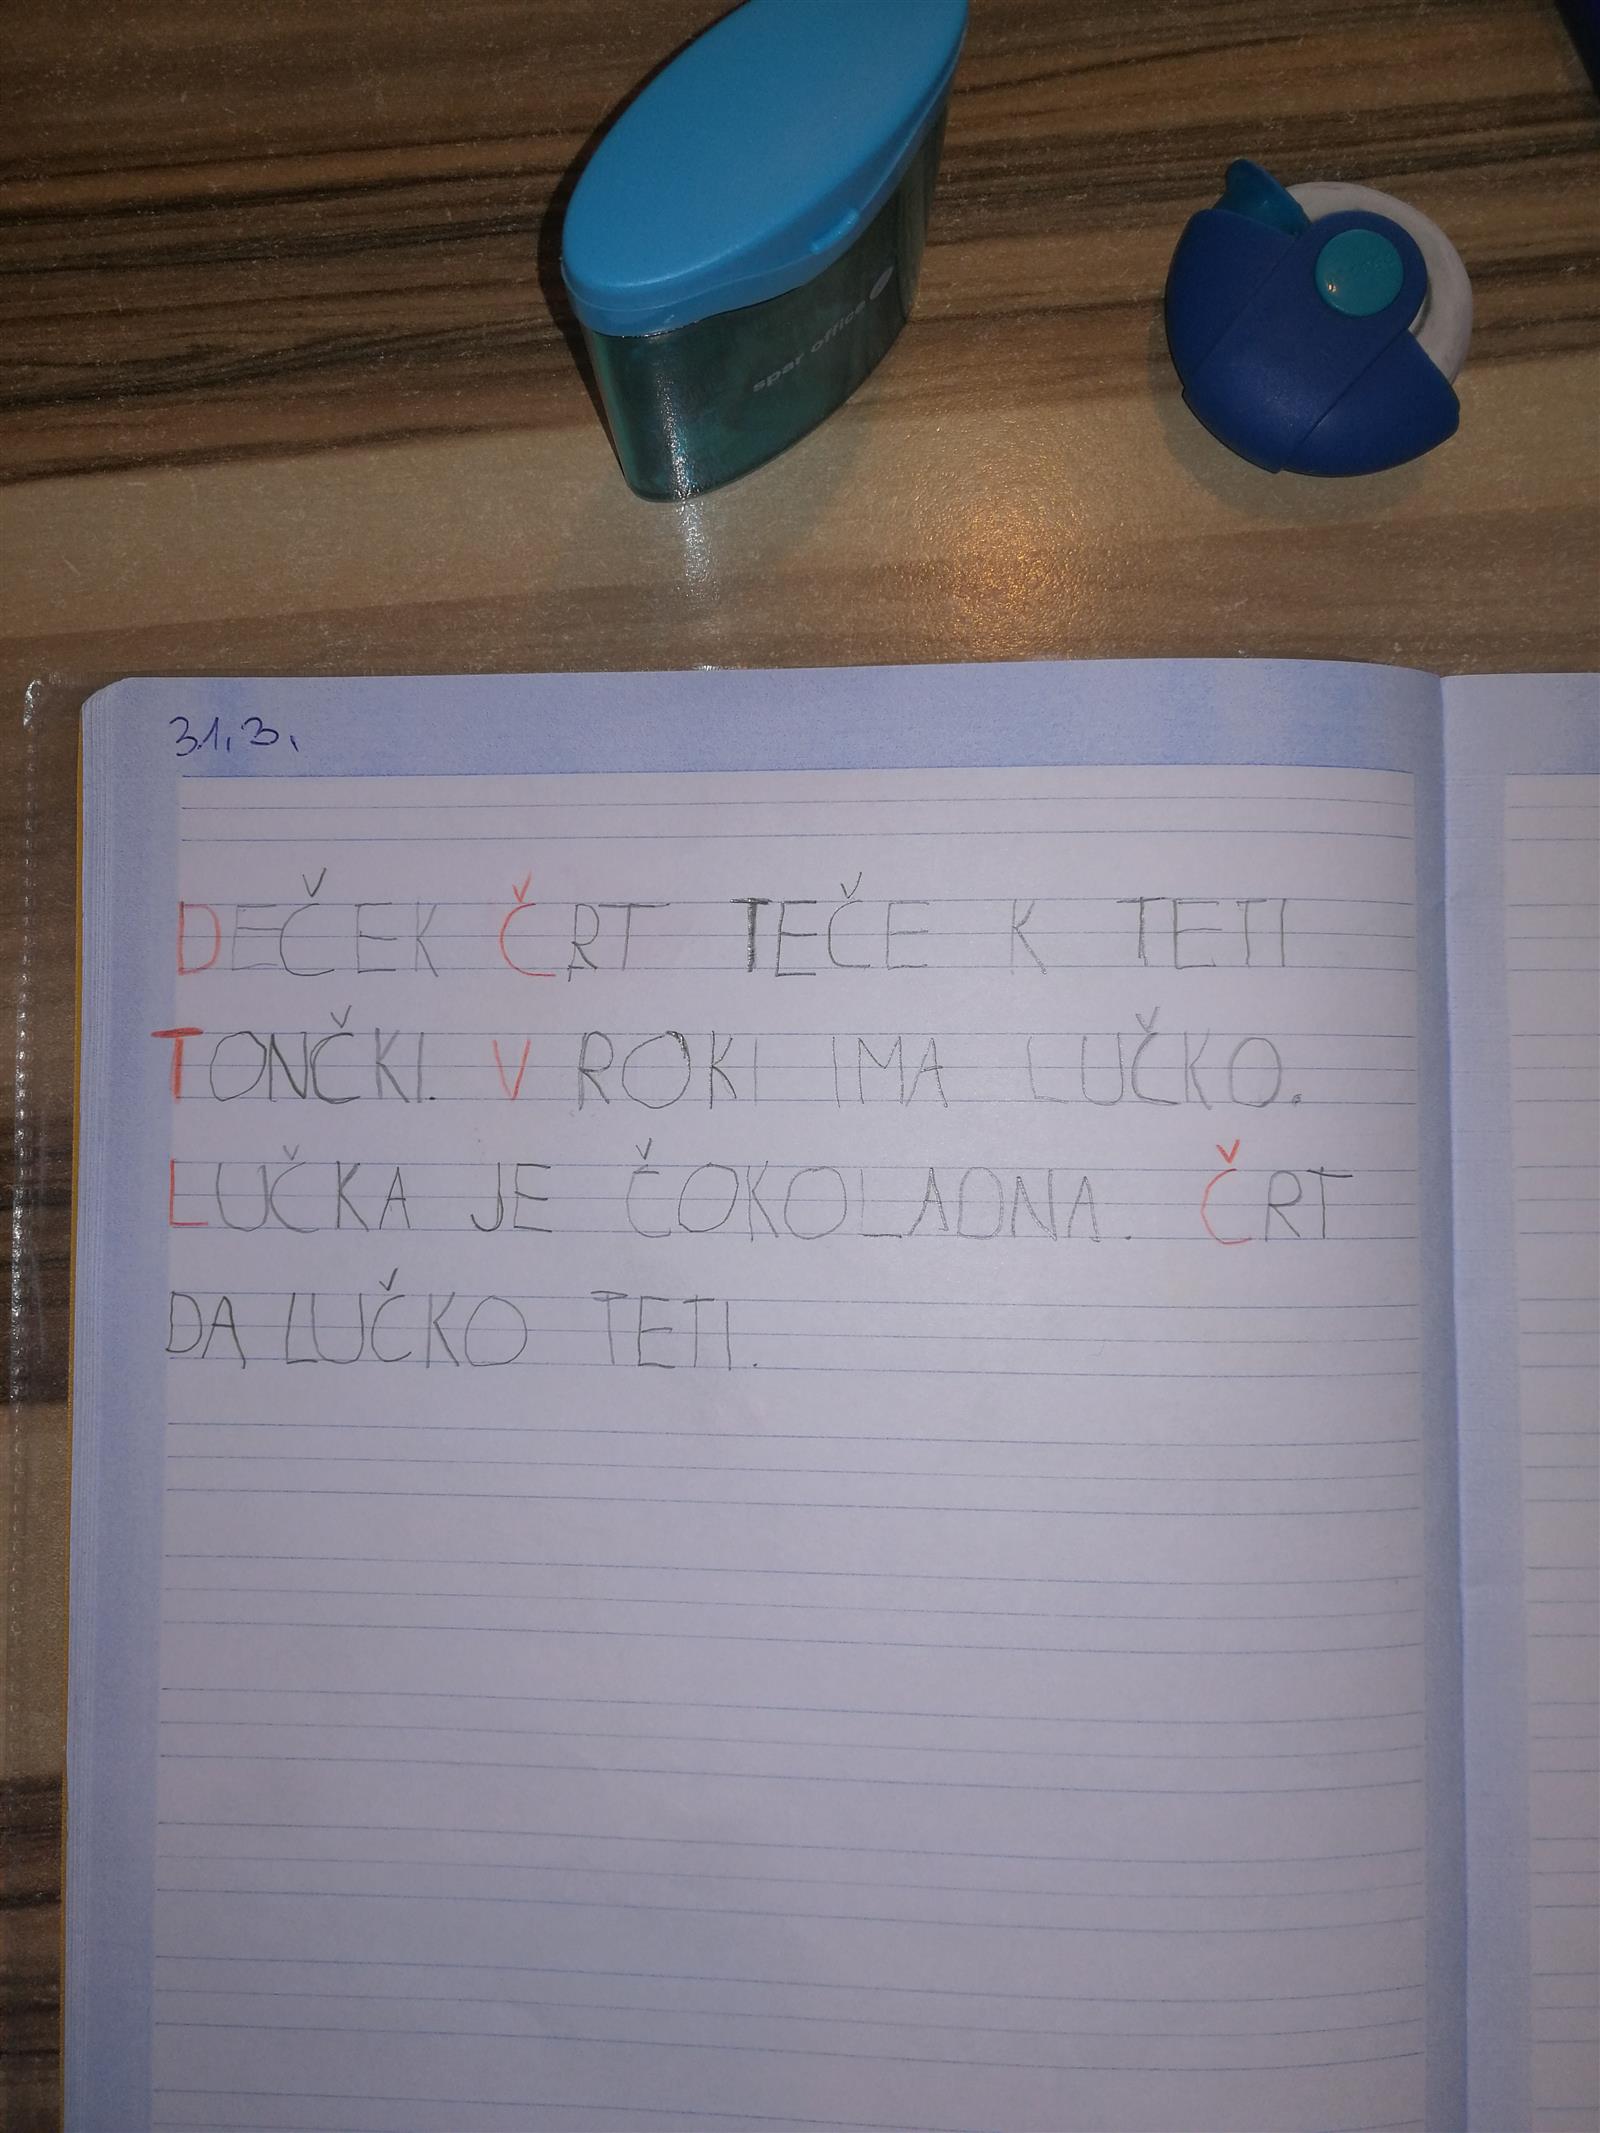 spar office
31.3.
DEČEK ČRT TEČE K TETI
TONČKI. V ROKI IMA LUČKO.
LUČKA JE ČOKOLADNA. ČRT
DA LUČKO TETI.